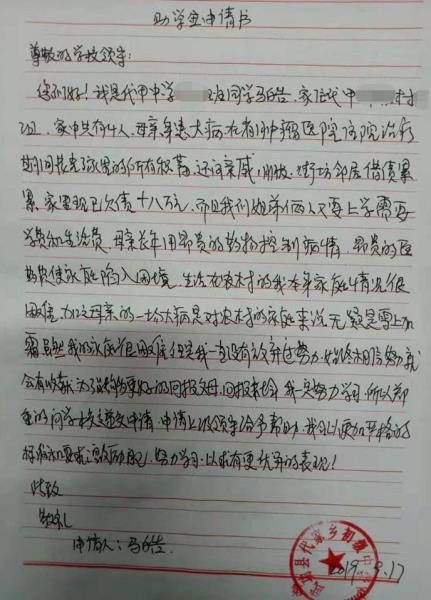 助学金申请书
尊敬的学校领导:
您们好!我是代甲中学 班同学马皓,家住代甲 村
班,家中共有4人,母亲身患大病在省肿瘤医院住院治疗
期间花光家里的所有积蓄,还问亲戚,朋友,街坊邻居借债累
累,家里现已欠债十八万元,而且我们姐弟俩人又要上学需要
学费和生活费,母亲长年用昂贵的药物控制病情,昂贵的医
药费使家庭陷入困境,生活在农村的我本来家庭情况很
困难,加之母亲的一场大病是对农村的家庭来说无疑是雪上加
霜虽然我的家庭很困难但是我一直没有放弃过努力,始终相信努力就
会有收获,为了能够更好的回报父母,回报 我一定努力学习,所以郑
重的向学校递交申请,申请上级领导给予帮助,我会以更加严格的
标准和要求激励自己,努力学习,以求有更优异的表现!
此致
敬礼
申请人:马皓
县代家乡初级中
2019. 9.17